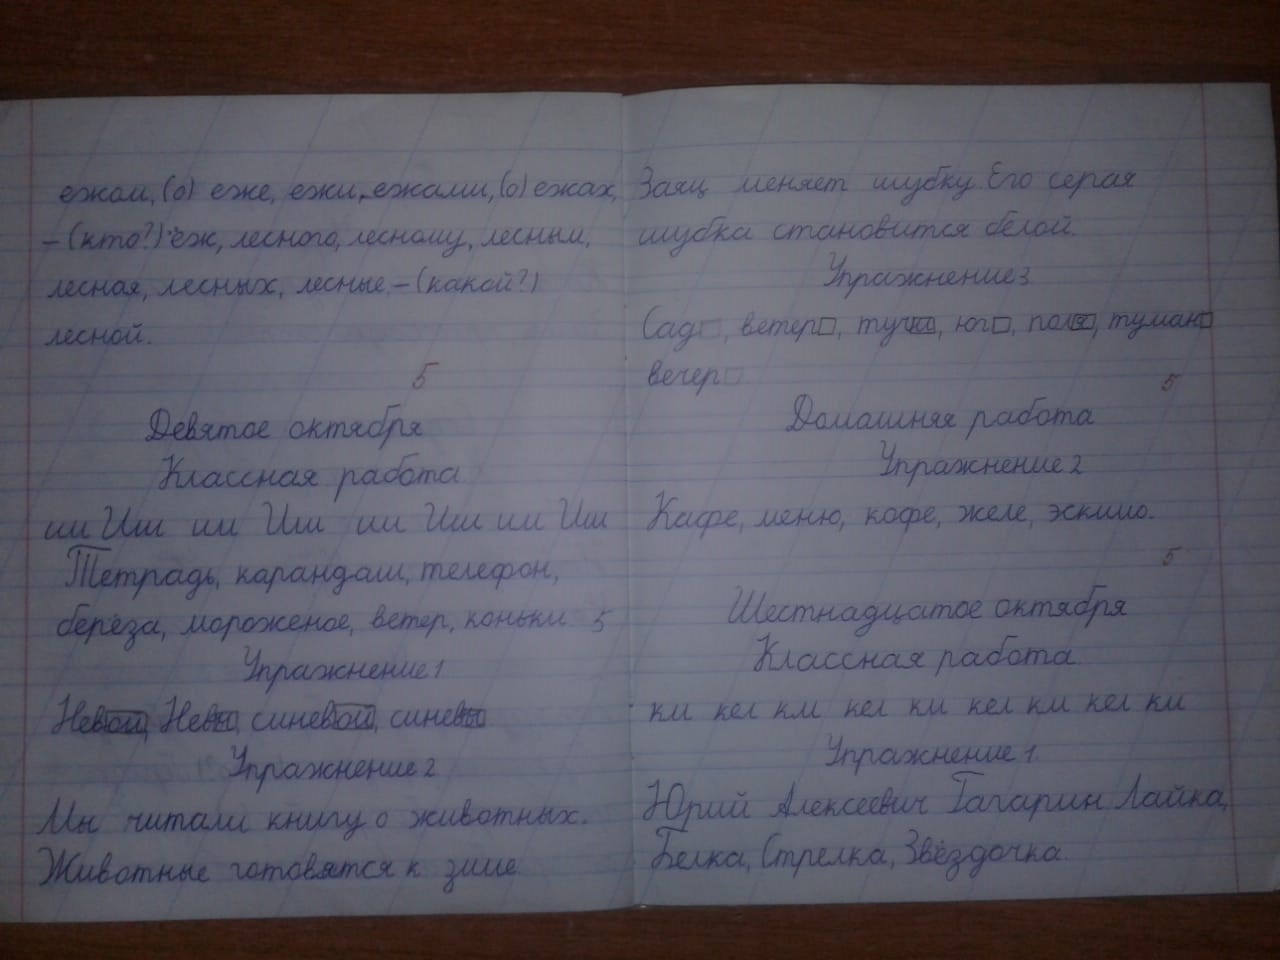 ежом, (о) еже, ежи, ежами, (о) ежах,
– (кто?) ёж, лесного, лесному, лесным,
лесная, лесных, лесные – (какой?)
лесной.
5
Девятое октября
Классная работа
ии Иш ии Иш ии Иш ии Иш
Тетрадь, карандаш, телефон,
берёза, мороженое, ветер, коньки 5
Упражнение 1
Невой, Невы, синевой, синевы
Упражнение 2
Мы читали книгу о животных.
Животные готовятся к зиме
Заяц меняет шубку. Его серая
шубка становится белой.
Упражнение 3
Сад, ветер, туча, юг, поля, туман
вечер
5
Домашняя работа
Упражнение 2
Кафе, меню, кофе, желе, эскимо.
5
Шестнадцатое октября
Классная работа
км кел км кел км кел км кел км
Упражнение 1
Юрий Алексеевич Гагарин Лайка,
Белка, Стрелка, Звёздочка.